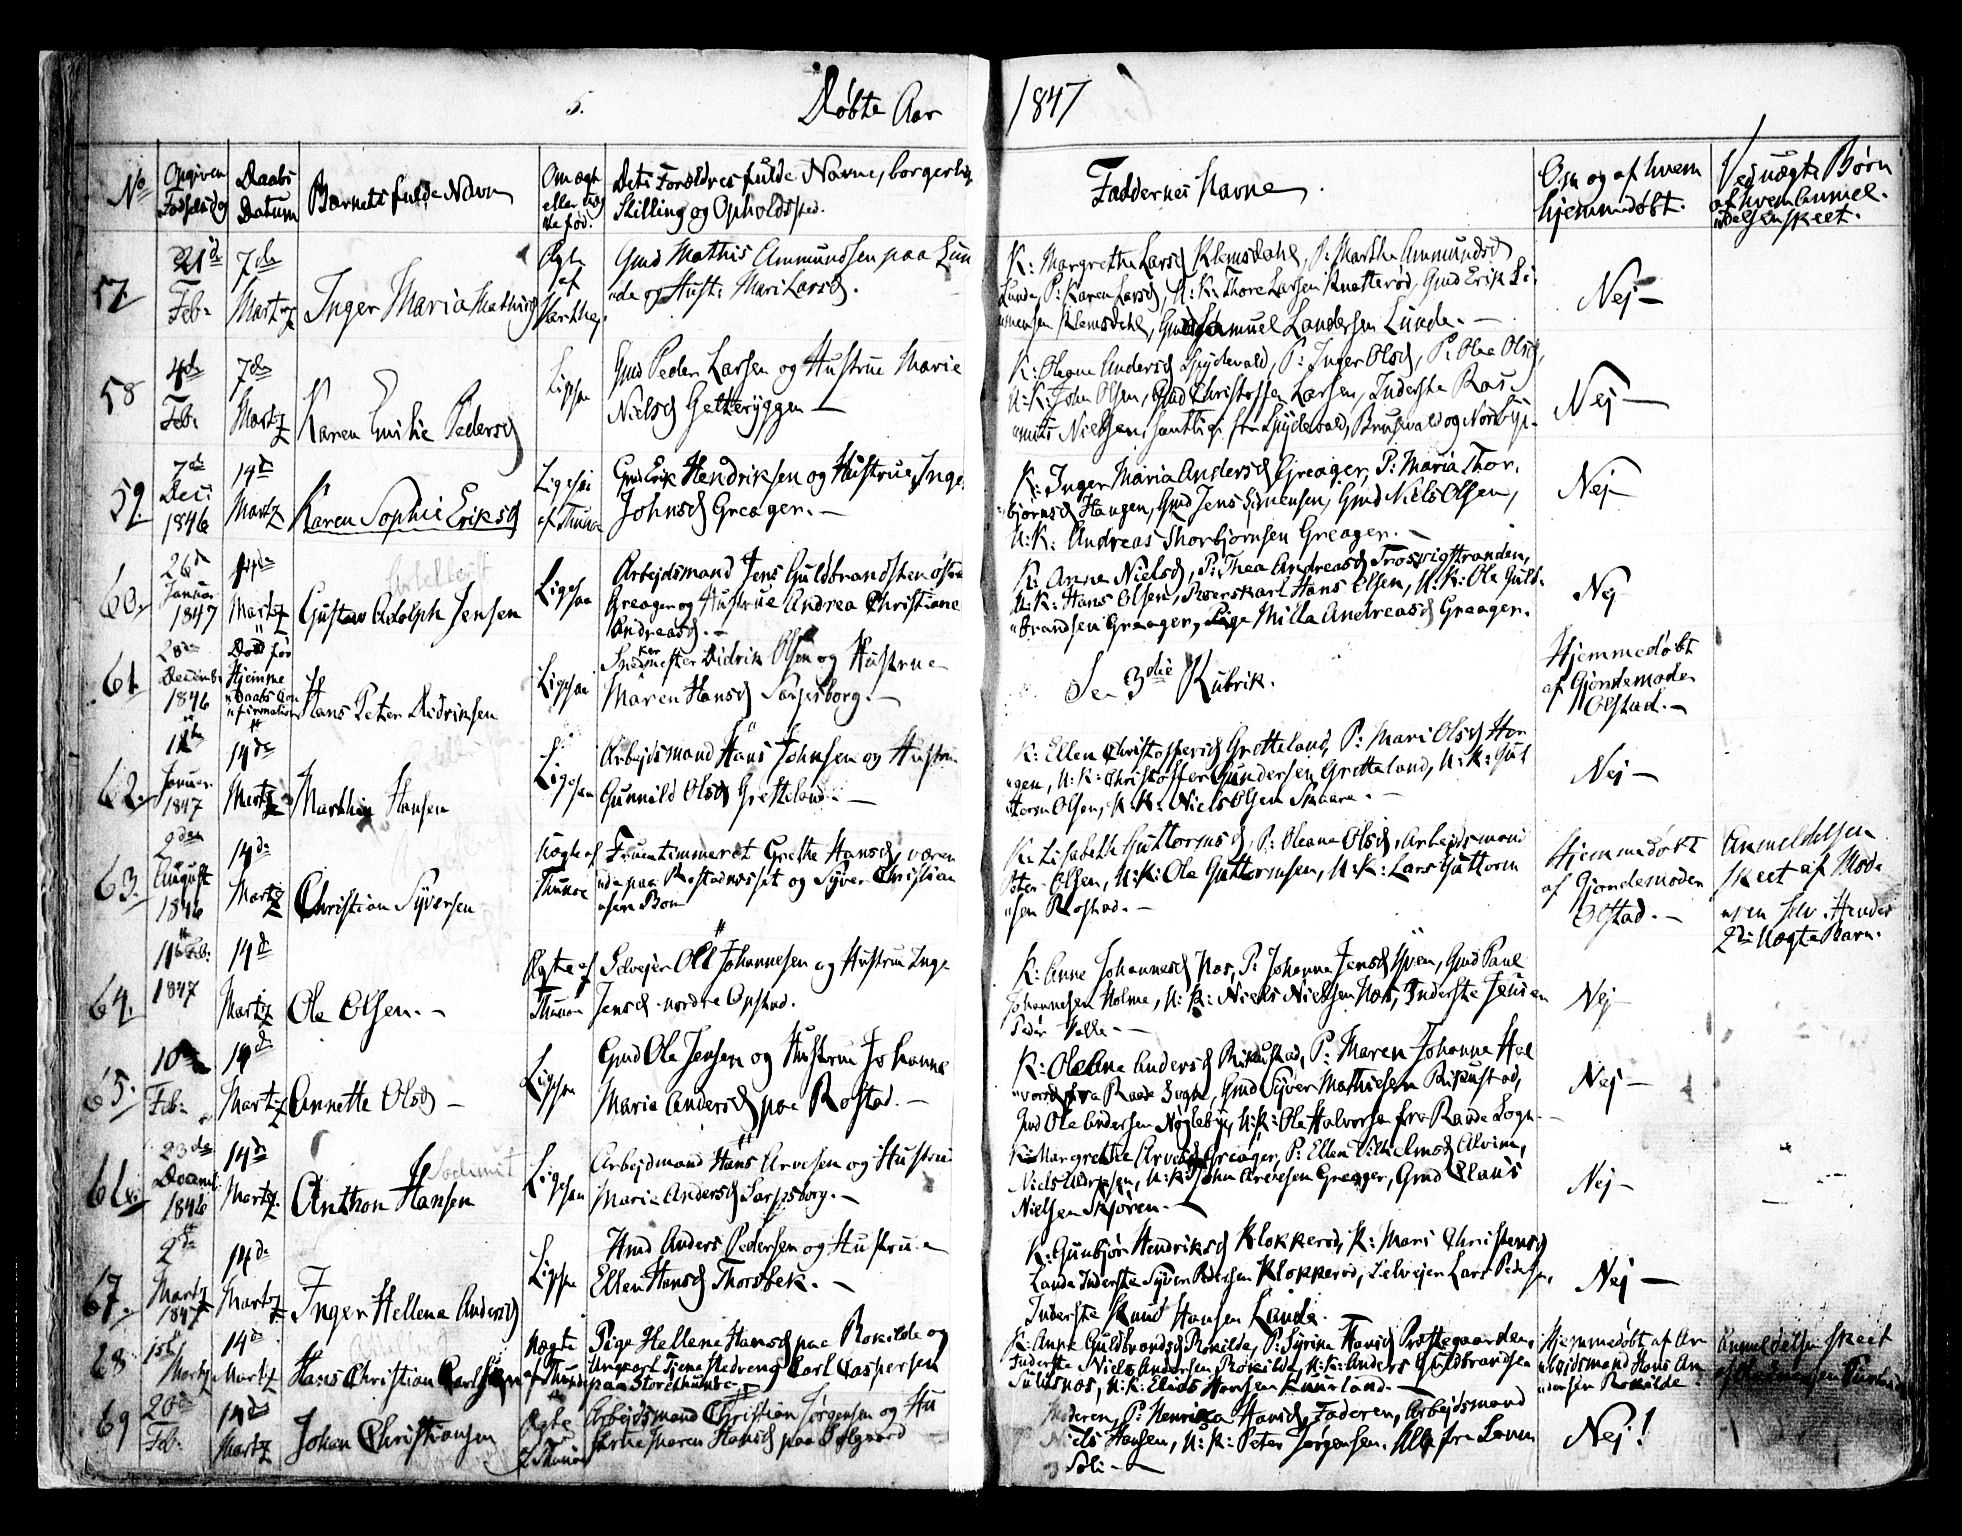 5. Døbte Aar 1847
No
Opgiven Fødselsdag
Daabs Datum
Barnets fulde Navn
Om ægte eller uægte fød.
Dets Forældres fulde Navne, borgerlig
Stilling og Opholdssted.
Faddernes Navne.
Om og af hvem
hjemmedøbt.
Ved uægte Børn
af hvem Anmel-
delsen skeet.
57. 21d Feb: 7de Martz Inger Maria Mathisd Ægte af
Gmd Mathis Ammundsen paa Lun
de og Hustr: Mari Larsd.
K: Margrethe Larsd Klemsdahl, P: Marthe Ammundsd
Lunde, P: Karen Larsd, U: K: Thore Larsen Knatterød, Gmd Erik Si-
mensen Klemsdahl, Gmd Samuel Landersen Lunde. —
Nej —
58 4de Feb: 7de Martz Karen Emilie Pedersd Ligesaa
Gmd Peder Larsen og Hustrue Marie
Nielsd Getterÿggen —
K: Oleane Andersd Spydevold, P: Inger Olsd, P: Olea Olsd,
U: K: John Olsen, Gmd Christoffer Larsen, Inderste Ras-
mus Nielsen, samtlige fra Spydevold, Brusevold og Nordby.
Nej —
59. 7de Dec: 1846 14d Martz Karen Sophie Eriksd Ligesaa af Thune
Gmd Erik Hendriksen og Hustrue Inge
Johnsd Greager. —
K: Inger Maria Andersd Greager, P: Maria Thor-
bjørnsd Haugen, Gmd Jens Simensen, Gmd Niels Olsen,
U: K: Andreas Thorbjørnsen Greager. —
Nej
60. 26d Januar 1847 14de Martz Gustav Adolph Jensen Ligesaa
Arbejdsmand Jens Guldbrandsen østre
Greager og Hustrue Andrea Christiane
Andreasd. —
K: Anne Nielsd, P: Thea Andreasd Trosvigstranden,
U: K: Hans Olsen, Hans Olsen, U: K: Ole Guld-
brandsen Greager, Pige Milla Andreasd Greager.
Nej
61. 28de Decemb: 1846 Død før Hjemme Daabs Con firmation Hans Peter Didriksen Ligesaa
Snedkermester Didrik Olsen og Hustrue
Maren Hansd Sarpsborg. —
Se 3die Rubrik.
Hjemmedøbt
af Gjordemoder
Olstad. —
62. Januar 1847 14de Martz Marthin Hansen Ligesaa
Arbejdsmand Hans Johnsen og Hustrue
Gunnild Olsd Gretteland. —
K: Ellen Christophersd Gretteland, P: Mari Olsd Hau
gen, U: K: Christoffer Gundersen Gretteland, U: K: Gut
torm Olsen, U: K: Niels Olsen Skaare. —
Nej —
63. 9den August 1846 14de Martz Christian Syversen Uægte af Thune
Fruentimmeret Grethe Hansd, væren
de paa Rostadnæsset og Syver Christian
sen Boe
K: Lisabeth Guttormsd, P: Oleane Olsd, Arbejdsmand
Peter Olsen, U: K: Ole Guttormsen, U: K: Lars Guttorm
sen Rostad. —
Hjemmedøbt
af Gjordemoder
Olstad. —
Anmeldelsen
skeet af Mode
ren selv. Hendes
2de Uægte Barn.
64. 11te Feb: 1847 14d Martz Ole Olsen. — Ægte af Thune
Selvejer Ole Johannesen og Hustrue Inge
Jensd nordre Opstad.
K: Anne Johannesd Næs, P: Johanne Jensd, Gmd Paul
Johannesen Holme, U: K: Niels Nielsen Næs, Inderste Jens
Peder
Nej
65. 10de Feb: 14d Martz Annette Olsd — Ligesaa
Gmd Ole Jensen og Hustrue Johanne
Marie Andersd paa Rostad. —
K: Oleane Andersd Rikustad, P: Maren Johanne Hal
vorsd fra Raade Sogn, Gmd Syver Mathiesen Rikustad,
Gmd Ole Andersen Nøgleby, U: K: Ole Halvorsen fra Raade Sogn.
Nej —
66. 23de Decemb: 1846 14de Martz Anthon Hansen Ligesaa
Arbejdmand Hans Arvesen og Hustrue
Maria Andersd Sarpsborg. —
K: Margrethe Arvesd Greager, P: Ellen Vilhelmsd Alvim,
Niels, U: K: John Arvesen Greager, Gmd Claus
Nielsen Skjøren. —
Nej —
67. 2de Martz 1847 14de Martz Inger Hellene Andersd Ligesaa
Hmd Anders Pedersen og Hustrue
Ellen Hansd Thorsbek. —
K: Gunbjør Hendriksd Klokkerød, K: Mari Christensd
Lande Inderste Syver Pedersen Klokkerød, Selvejer Lars Pedersen,
Inderste Knud Hansen Lande.
Nej —
68 1ste Martz 14de Martz Hans Christian Carlsen Uægte af Thune
Pige Hellene Hansd paa Rokilde og
Ungkarl Tjenestedreng Carl Caspersen
paa Storethune
K: Anne Guldbrandsd Rokilde, P: Syrine Hansd Præstegaarden,
Inderste Niels Andersen Rokilde, U: K: Anders Guldbrandsen
U: K: Elias Hansen Kuurland. —
Hjemmedøbt af Ar
bejdsmand Hans An
dersen Rokilde.
Anmeldelsen skeet
69 20de Feb: 14de Martz Johan Christiansen Ægte af Thune
Arbejdsmand Christian Jørgensen og Hu
strue Maren Hansd paa
Moderen, P: Henrikka Hansd, Faderen, Arbejdsmand
Niels Hansen, U: K: Peter Jørgensen. Alle fra
Nej!